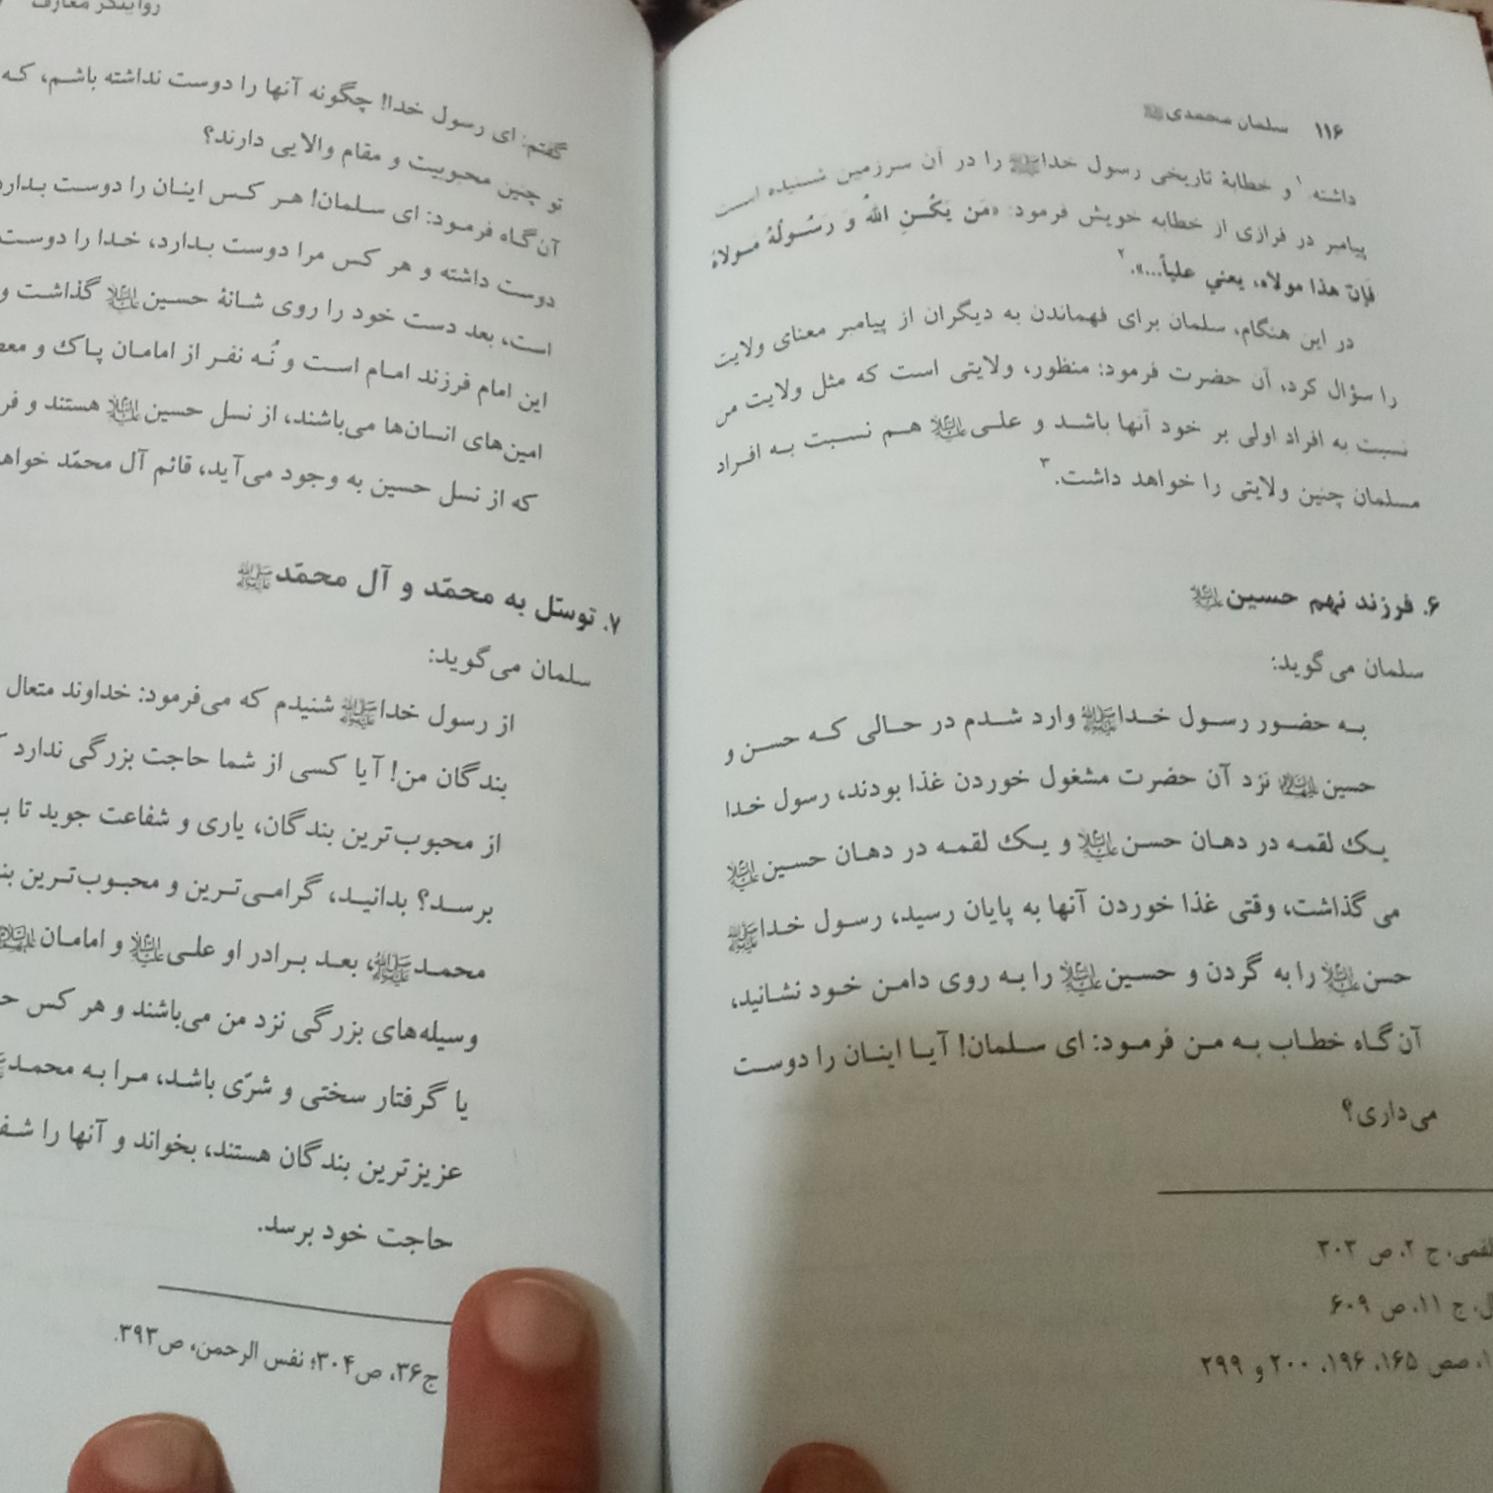 ۱۱۶ سلمان محمدی
داشته ۱ و خطابهٔ تاریخی رسول خداﷺ را در آن سرزمین شنیده است
پیامبر در فرازی از خطابه خویش فرمود: «مَن یَکُنِ اللهُ وَ رَسُولُهُ مَولاهُ
فَإنّ هذا مولاه، یعني علیاً...».۲
در این هنگام، سلمان برای فهماندن به دیگران از پیامبر معنای ولایت
را سؤال کرد، آن حضرت فرمود: منظور، ولایتی است که مثل ولایت من
نسبت به افراد اولی بر خود آنها باشد و علی؏ هم نسبت به افراد
مسلمان چنین ولایتی را خواهد داشت.۳
۶. فرزند نهم حسین؏
سلمان می‌گوید:
به حضور رسول خداﷺ وارد شدم در حالی که حسن و
حسین نزد آن حضرت مشغول خوردن غذا بودند، رسول خدا
یک لقمه در دهان حسن؏ و یک لقمه در دهان حسین؏
می گذاشت، وقتی غذا خوردن آنها به پایان رسید، رسول خداﷺ
حسن؏ را به گردن و حسین؏ را به روی دامن خود نشانید،
آن‌گاه خطاب به من فرمود: ای سلمان! آیا اینان را دوست
می‌داری؟
القمی، ج ۲، ص ۳۰۳
ج ۱۱، ص ۶۰۹
صص ۱۶۵، ۱۹۶، ۲۰۰ و ۲۹۹
روایتگر معارف
گفتم: ای رسول خدا! چگونه آنها را دوست نداشته باشم، که
تو چنین محبوبیت و مقام والایی دارند؟
آن‌گاه فرمود: ای سلمان! هر کس اینان را دوست بدارد
دوست داشته و هر کس مرا دوست بدارد، خدا را دوست
است، بعد دست خود را روی شانهٔ حسین؏ گذاشت و
این امام فرزند امام است و نُه نفر از امامان پاک و
امین‌های انسان‌ها می‌باشند، از نسل حسین؏ هستند و
که از نسل حسین به وجود می‌آید، قائم آل محمّد
۷. توسّل به محمّد و آل محمّدﷺ
سلمان می‌گوید:
از رسول خداﷺ شنیدم که می‌فرمود: خداوند متعال
بندگان من! آیا کسی از شما حاجت بزرگی ندارد
از محبوب‌ترین بندگان، یاری و شفاعت جوید تا
برسد؟ بدانید، گرامی‌ترین و محبوب‌ترین
محمدﷺ، بعد برادر او علی؏ و امامان
وسیله‌های بزرگی نزد من می‌باشند و هر کس
یا گرفتار سختی و شرّی باشد، مرا به محمد
عزیزترین بندگان هستند، بخواند و آنها را
حاجت خود برسد.
ج۳۶، ص۳۰۴؛ نفس الرحمن، ص۳۹۳.